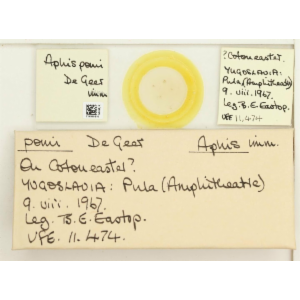 Aphis pomi
De Geer
imm.
? Cotoneaster.
YUGOSLAVIA:
Pula (Amphitheatre)
9. viii. 1967.
Leg. B.E. Eastop.
VFE. 11.474
pomi De Geer Aphis imm.
On Cotoneaster?
YUGOSLAVIA: Pula (Amphitheatre)
9. viii. 1967.
Leg. B.E. Eastop.
VFE. 11.474.